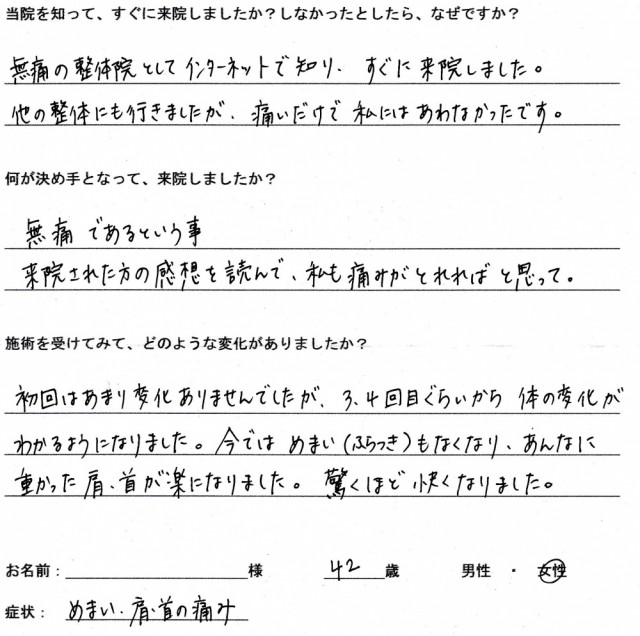 当院を知って、すぐに来院しましたか？しなかったとしたら、なぜですか？
無痛の整体院としてインターネットで知り、すぐに来院しました。
他の整体にも行きましたが、痛いだけで私にはあわなかったです。
何が決め手となって、来院しましたか？
無痛であるという事
来院された方の感想を読んで、私も痛みがとれればと思って。
施術を受けてみて、どのような変化がありましたか？
初回はあまり変化ありませんでしたが、3、4回目ぐらいから体の変化が
わかるようになりました。今ではめまい（ふらつき）もなくなり、あんなに
重かった肩、首が楽になりました。驚くほど快くなりました。
お名前：様 42歳 男性 ・ 女性
症状： めまい・肩・首の痛み